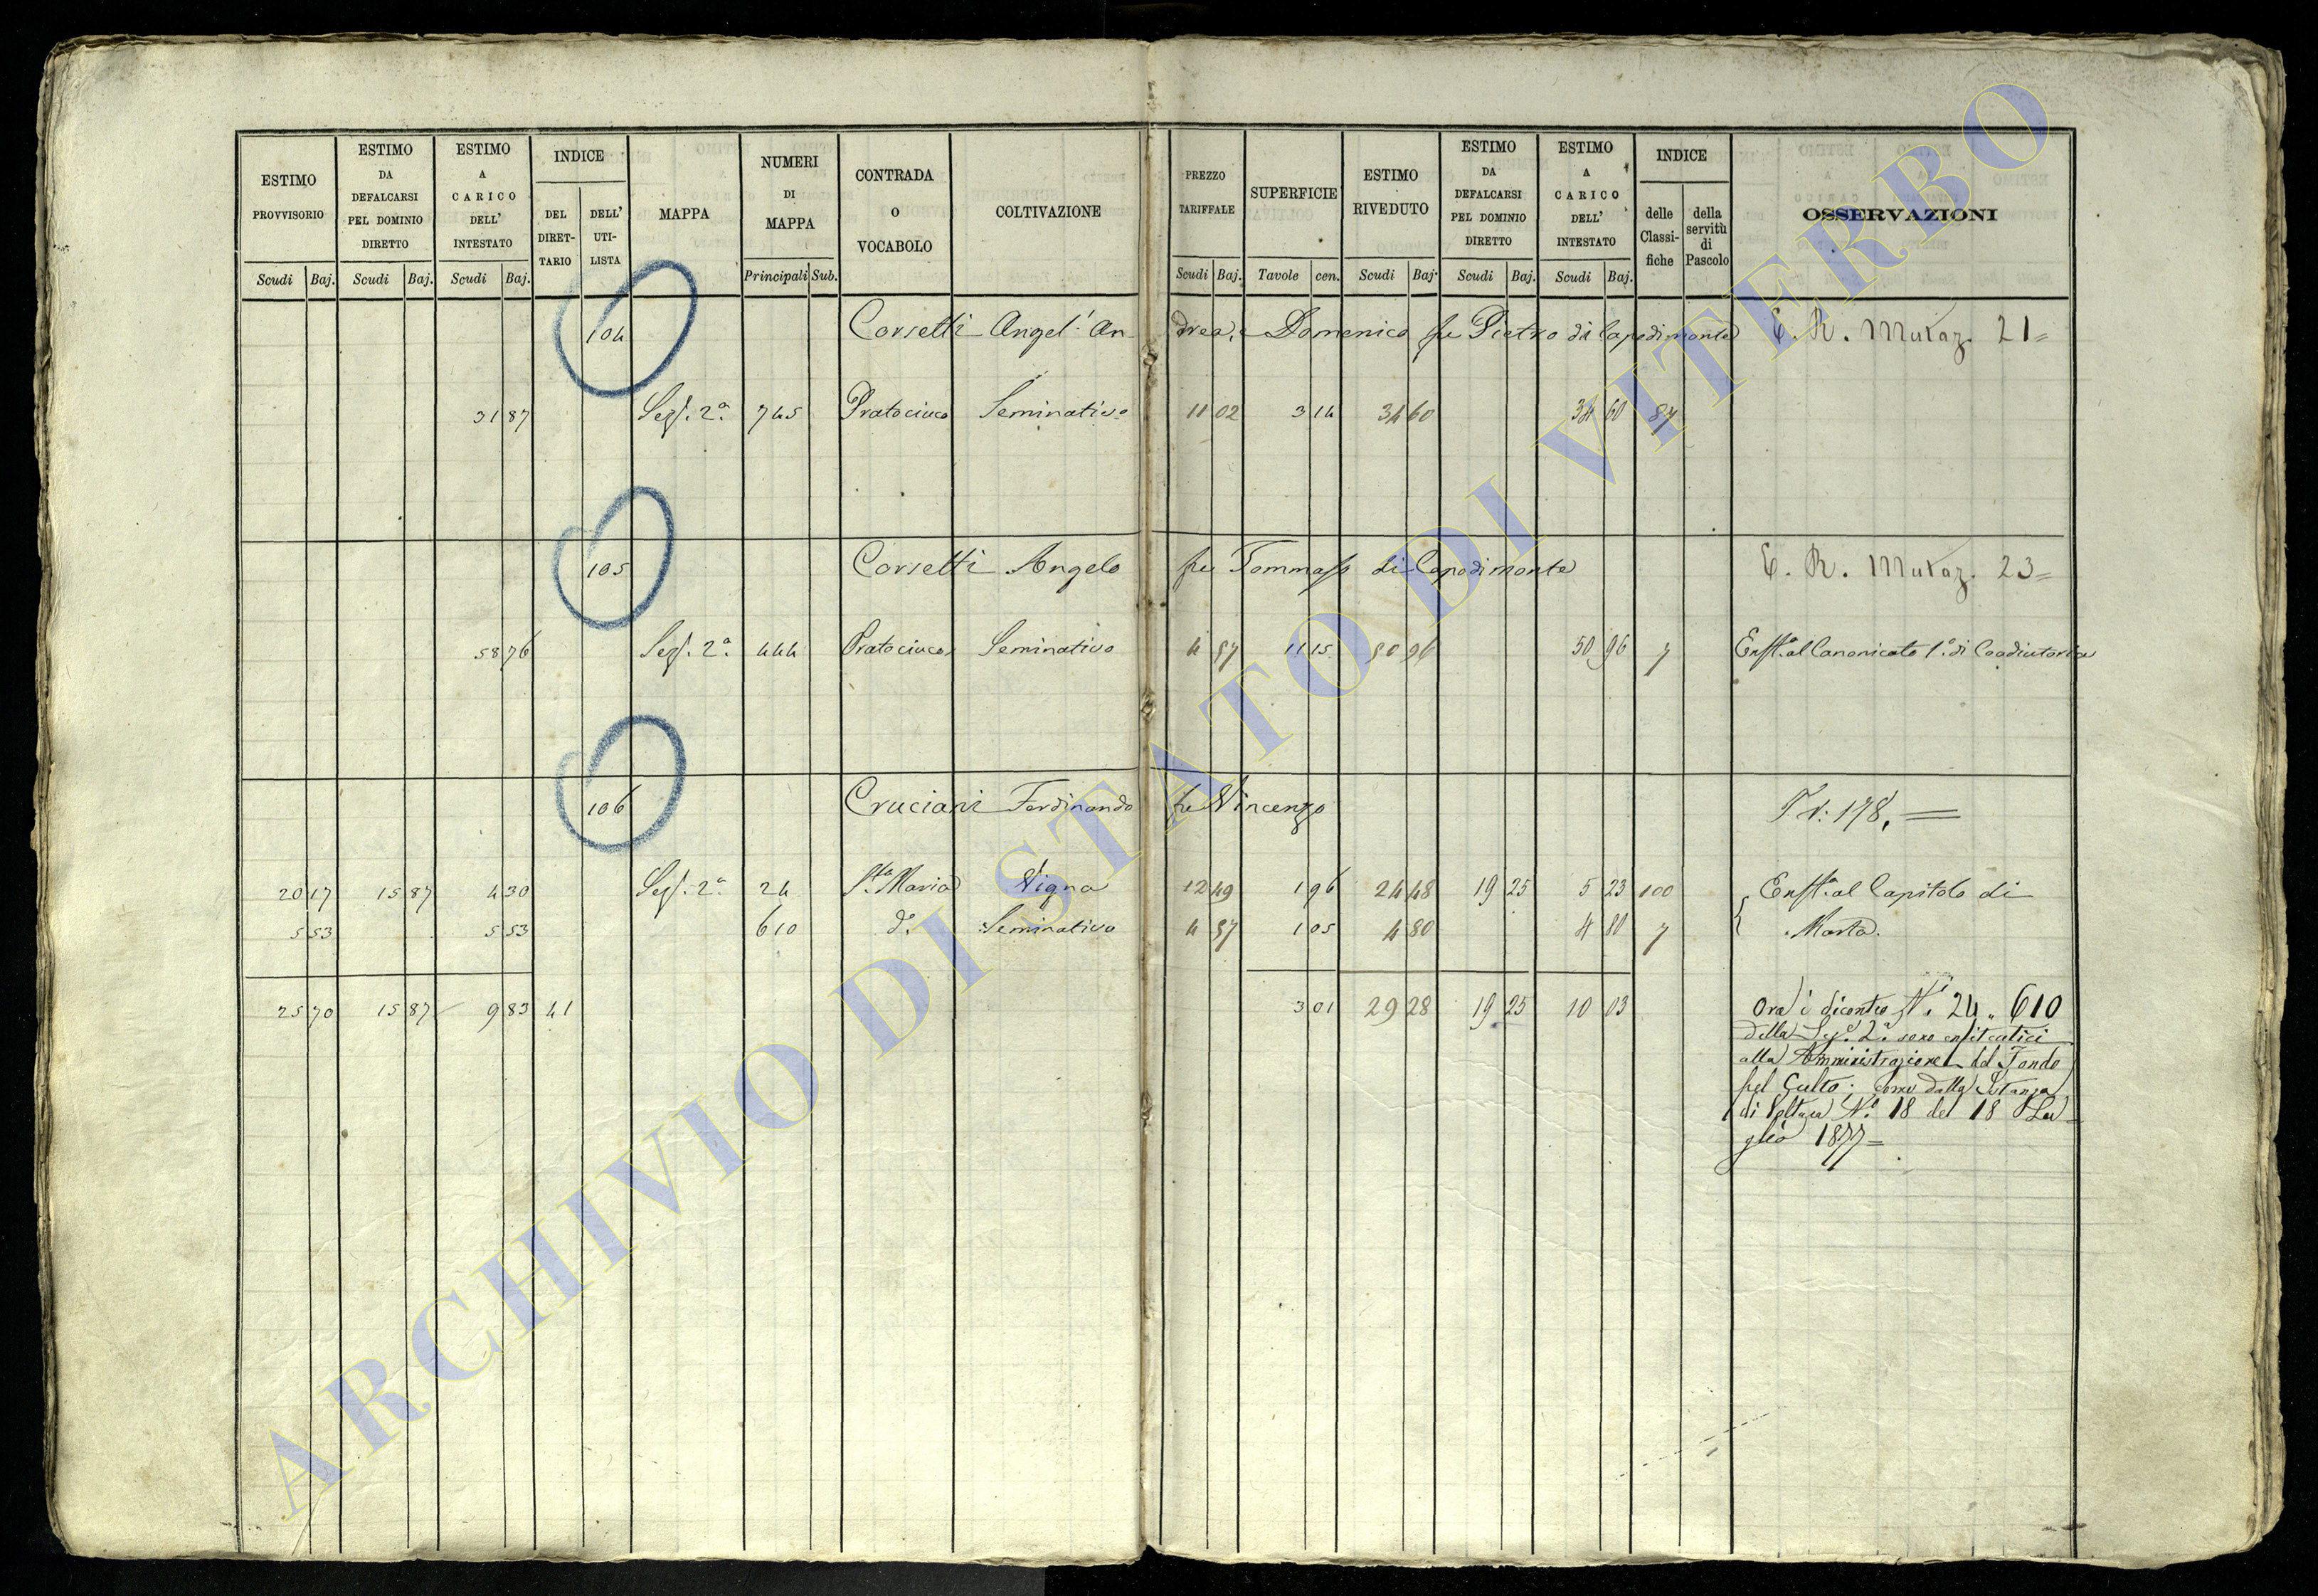 ESTIMO PROVVISORIO
ESTIMO DA DEFALCARSI PEL DOMINIO DIRETTO
ESTIMO A CARICO DELL' INTESTATO
INDICE
DEL DIRET-TARIO
DELL' UTI-LISTA
MAPPA
NUMERI DI MAPPA
CONTRADA O VOCABOLO
COLTIVAZIONE
PREZZO TARIFFALE
SUPERFICIE
ESTIMO RIVEDUTO
ESTIMO DA DEFALCARSI PEL DOMINIO DIRETTO
ESTIMO A CARICO DELL' INTESTATO
INDICE
delle Classi-fiche
della servitù di Pascolo
OSSERVAZIONI
Scudi Baj. Scudi Baj. Scudi Baj. Principali Sub. Scudi Baj. Tavole cen. Scudi Baj. Scudi Baj. Scudi Baj.
104 Corsetti Angel'An-drea, e Domenico fu Pietro di Capodimonte E. R. Mutaz. 21=
31 87 Sez. 2a 745 Pratocinco Seminativo 11 02 3 14 34 60 34 60 87
105 Corsetti Angelo fu Tommaso di Capodimonte E. R. Mutaz. 23=
58 76 Sez. 2a 444 Pratocinco Seminativo 4 57 11 15 50 96 50 96 7 Enft.a al Canonicato 1.° di Coadiutoria
106 Cruciani Ferdinando fu Vincenzo T V: 178, =
20 17 15 87 4 30 Sez. 2a 24 S.ta Maria Vigna 12 49 1 96 24 48 19 25 5 23 100 Enft.a al Capitolo di
5 53 5 53 610 d.° Seminativo 4 57 1 05 4 80 4 80 7 Marta.
25 70 15 87 9 83 41 3 01 29 28 19 25 10 03 Ora i dicontro N.i 24. 610
della Sez.e 2.a sono enfiteutici
alla Amministrazione del Fondo
pel Culto; come dalla Istanza
di Voltura N.° 18 del 18 Lu-
glio 1877=
ARCHIVIO DI STATO DI VITERBO